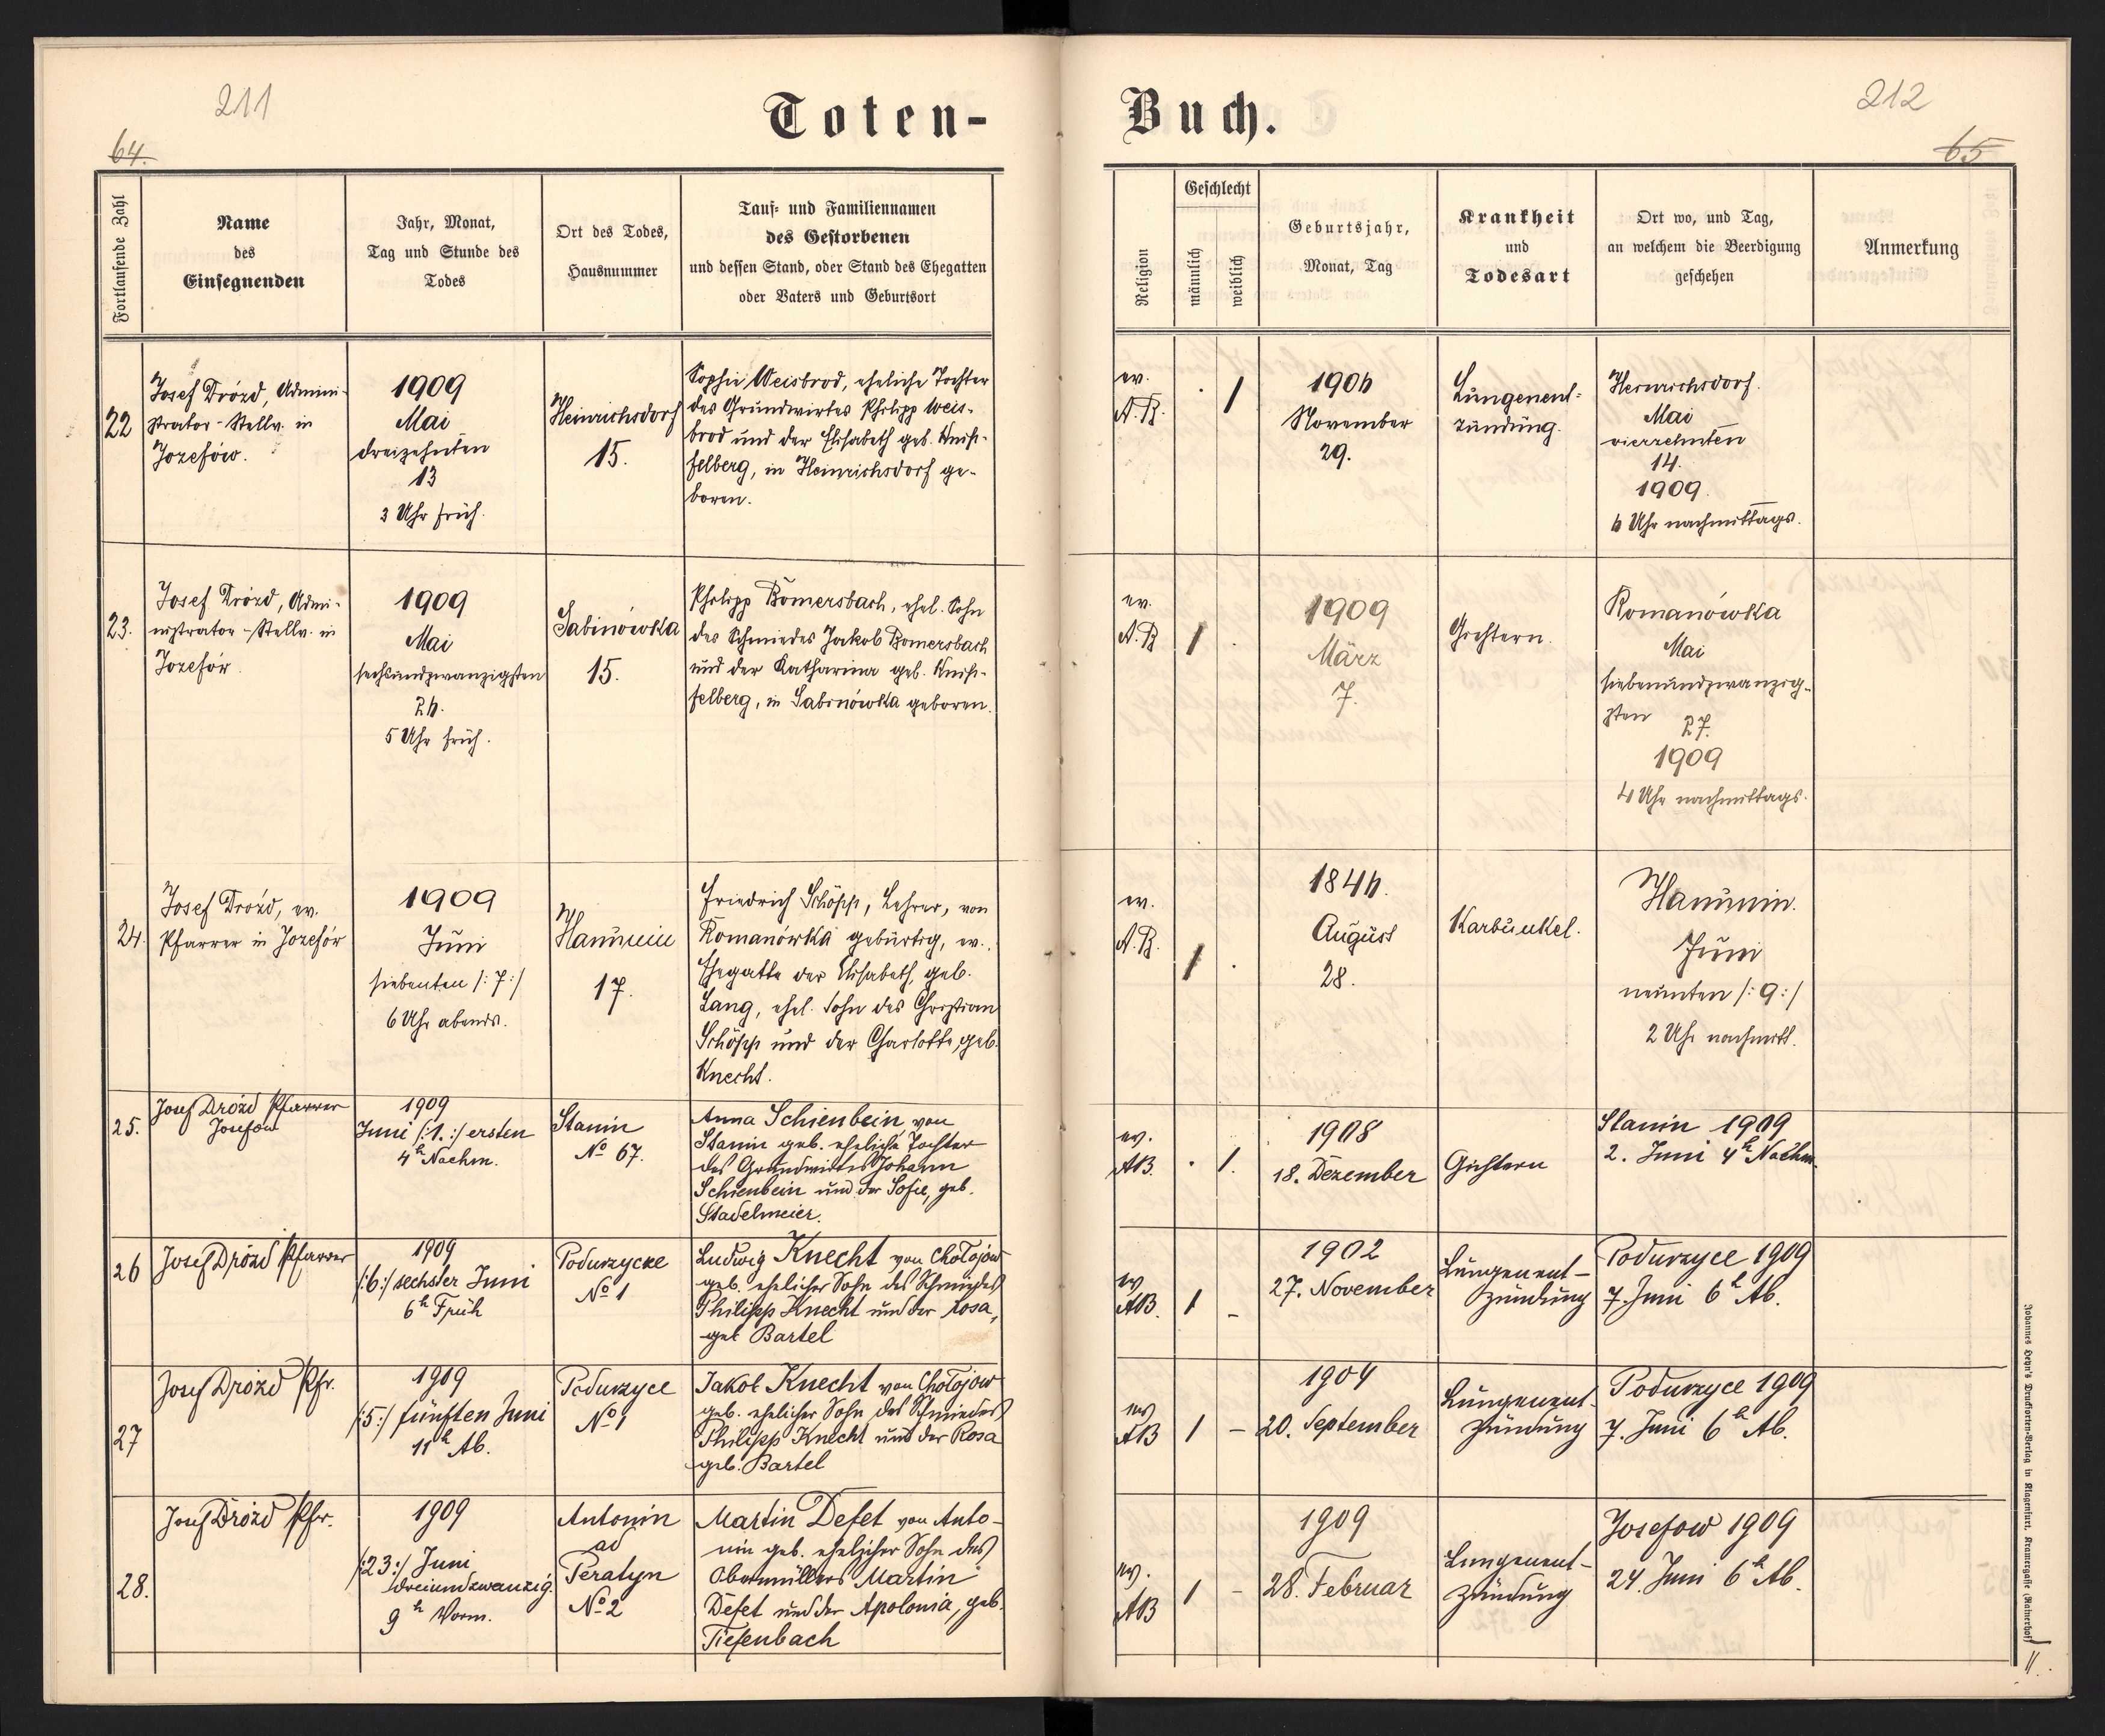 211
64.
Toten-
Fortlaufende Zahl
Name
des
Einsegnenden
Jahr, Monat,
Tag und Stunde des
Todes
Ort des Todes,
Hausnummer
Tauf- und Familiennamen
des Gestorbenen
und dessen Stand, oder Stand des Ehegatten
oder Vaters und Geburtsort
22
Josef Drózd, Admini-
strator-Stellv. in
Jozefów.
1909
Mai
dreizehnten
13
3 Uhr früh.
Heinrichsdorf
15.
Sophie Weisbrod, eheliche Tochter
des Grundwirtes Philipp Weis-
brod und der Elisabeth geb. Knis-
selberg, in Heinrichsdorf ge-
boren.
23.
Josef Drózd, Admi-
nistrator-Stellv. in
Jozefów.
1909
Mai
sechsundzwanzigsten
26.
5 Uhr früh.
Sabinówka
15.
Philipp Bomersbach, ehel. Sohn
des Schmiedes Jakob Bomersbach
und der Katharina geb. Knis-
selberg, in Sabinówka geboren.
24.
Josef Drózd, ev.
Pfarrer in Jozefów
1909
Juni
siebenten /:7:/
6 Uhr abends.
Hanunin
17.
Friedrich Schöpp, Lehrer, von
Romanówka gebürtig, ev.,
Ehegatte der Elisabeth, geb.
Lang, ehel. Sohn des Christian
Schöpp und der Charlotte, geb.
Knecht.
25.
Josef Drózd Pfarrer
Josefow
1909
Juni /:1.:/ ersten
4 h Nachm.
Stanin
No 67.
Anna Schienbein, von
Stanin geb. eheliche Tochter
des Grundwirtes Johann
Schienbein und der Sofie, geb.
Stadelmeier.
26
Josef Drózd Pfarrer
1909
/:6:/ sechster Juni
6 h Früh
Podurzycze
No 1
Ludwig Knecht von Chołojow
geb. ehelicher Sohn des Schmiedes
Philipp Knecht und der Rosa,
geb Bartel
27
Josef Drózd Pfr.
1909
/:5:/ fünften Juni
11 h Ab.
Podurzyce
No 1
Jakob Knecht von Chołojow
geb. ehelicher Sohn des Schmiedes
Philipp Knecht und der Rosa
geb. Bartel
28.
Josef Drózd Pfr.
1909
/:23:/ Juni
dreiundzwanzig.
9 h Vorm.
Antonin
ad
Peratyn
No 2
Martin Defet von Anto-
nin geb. ehelicher Sohn des
Obermüllers Martin
Defet und der Apolonia, geb.
Tiefenbach
212
65
Buch.
Religion
Geschlecht
männlich
weiblich
Geburtsjahr,
Monat, Tag
Krankheit
und
Todesart
Ort wo, und Tag,
an welchem die Beerdigung
geschehen
Anmerkung
ev.
A.B.
. 1
1906
November
29.
Lungenent-
zündung.
Heinrichsdorf.
Mai
vierzehnten
14.
1909.
6 Uhr nachmittags.
ev.
A.B
1 .
1909
März
7.
Gichtern.
Romanówka
Mai
siebenundzwanzig-
sten 27.
1909
4 Uhr nachmittags.
ev.
A.B.
1 .
1846.
August
28.
Karbunkel.
Hanunin.
Juni
neunten /:9:/
2 Uhr nachmitt.
ev.
AB.
. 1.
1908
18. Dezember
Gichtern
Stanin 1909
2. Juni 4 h Nachm.
ev
AB.
1 -
1902
27. November
Lungenent-
zündung
Podurzyce 1909
7. Juni 6 h Ab.
ev
AB
1 -
1904
20. September
Lungenent-
zündung
Podurzyce 1909
7. Juni 6 h Ab.
ev.
AB
1 -
1909
28. Februar
Lungenent-
zündung
Josefow 1909
24. Juni 6 h Ab.
Johannes Heyn's Drucksorten-Verlag in Klagenfurt, Kramergasse Rainerhof
11.